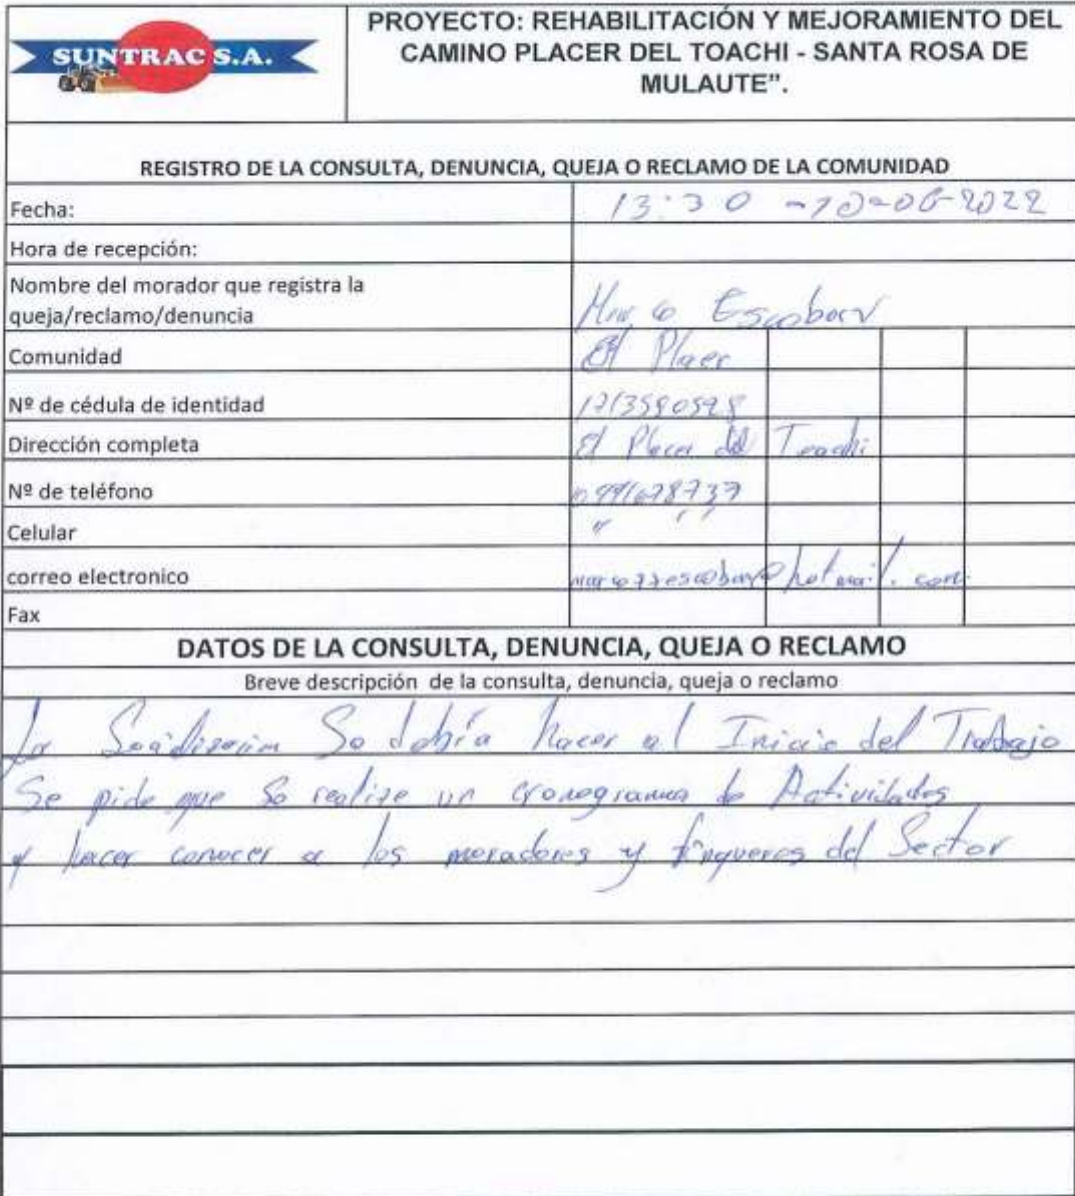 SUNTRAC S.A.
PROYECTO: REHABILITACIÓN Y MEJORAMIENTO DEL
CAMINO PLACER DEL TOACHI - SANTA ROSA DE
MULAUTE".
REGISTRO DE LA CONSULTA, DENUNCIA, QUEJA O RECLAMO DE LA COMUNIDAD
Fecha: 13:30 -10-06-2022
Hora de recepción:
Nombre del morador que registra la
queja/reclamo/denuncia Marco Escobar
Comunidad El Placer
Nº de cédula de identidad
Dirección completa El Placer del Toachi
Nº de teléfono
Celular " "
correo electronico
Fax
DATOS DE LA CONSULTA, DENUNCIA, QUEJA O RECLAMO
Breve descripción de la consulta, denuncia, queja o reclamo
La Se debía hacer al Inicio del Trabajo
Se pide que se realize un cronograma de Actividades
y hacer conocer a los moradores y finqueros del Sector